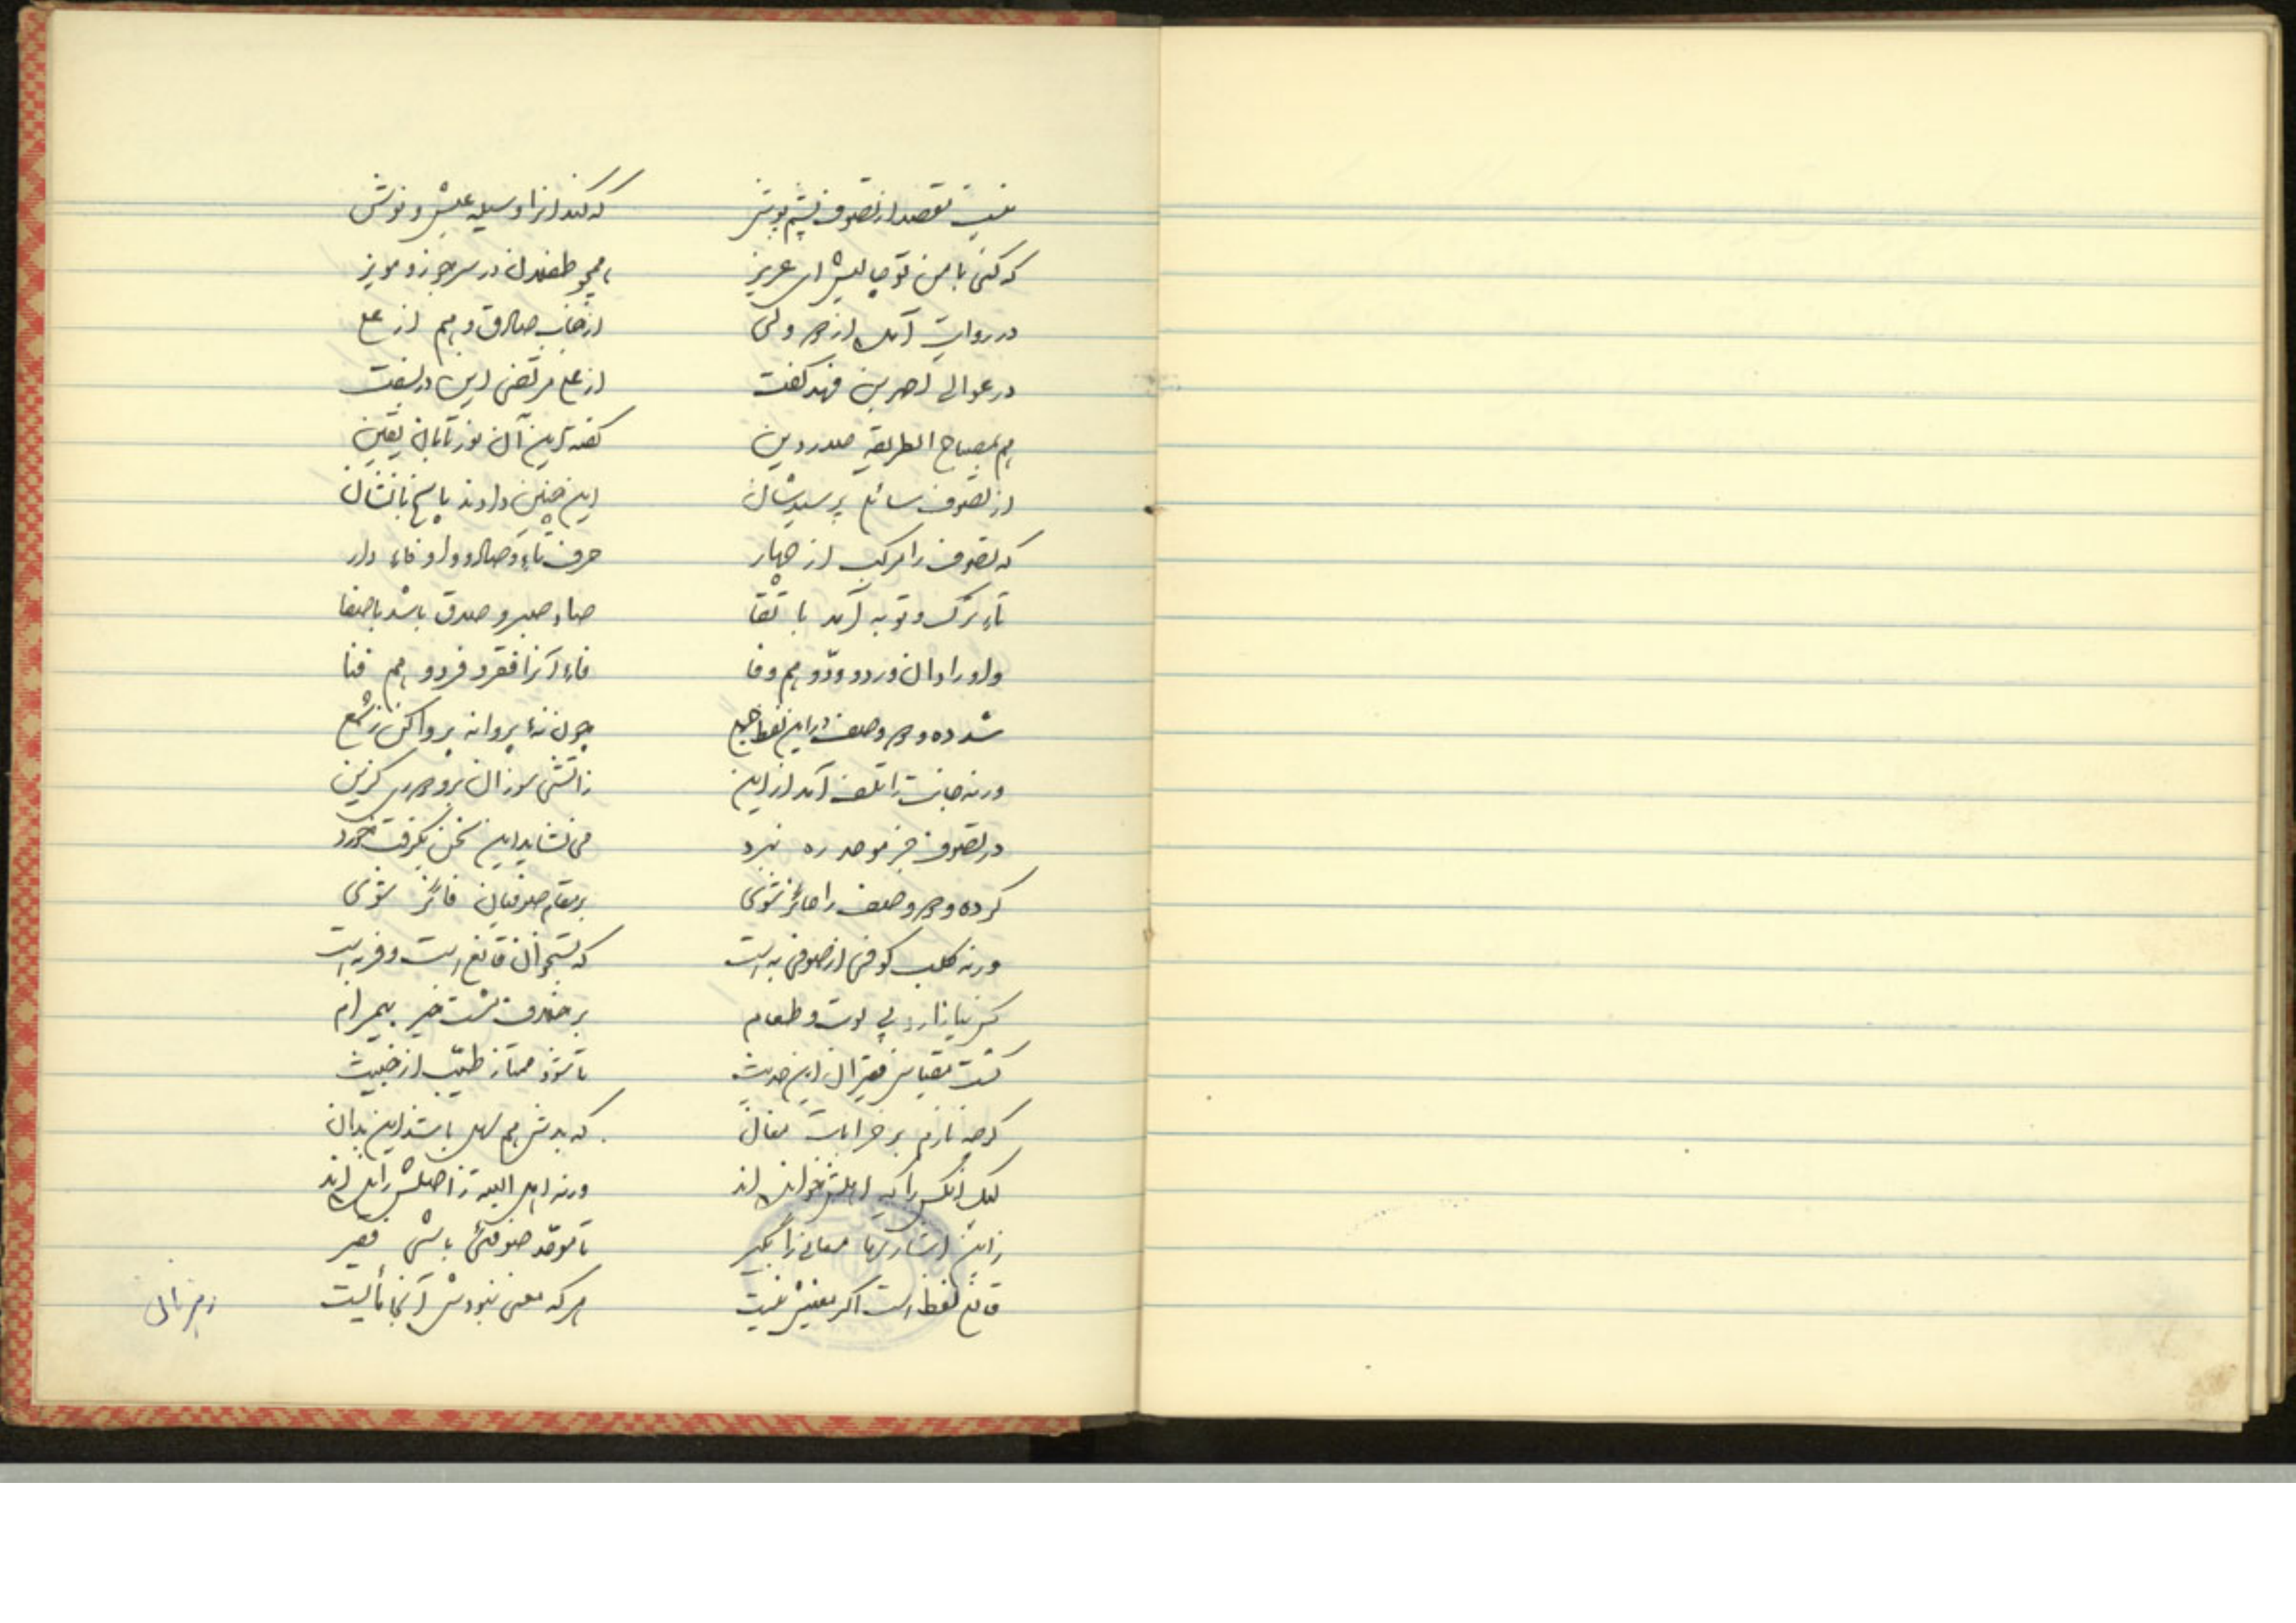 نیست مقصد از تصوف پشم پوش که کند آنرا وسیله عیش و نوش
که کنی با من تو چالیش ای عزیز همچو طفلان در سر جوز و مویز
در روایت آمده از هر ولی از جناب صادق و هم از علی
در عوالی احمد بن فهد گفت از علی مرتضی این در بسفت
هم بمصباح الطریقه صدر دین گفته این آن نور تابان یقین
از تصوف سائلی پرسیدشان این چنین دادند پاسخ با نشان
که تصوف را مرکب از چهار حرف تاء و صاد و واو و فاء دار
تاء ترک و توبه آمد با تقا صاد صبر و صدق باشد با صفا
واو را دان ورد و ودّ و هم وفا فاء آنرا فقر و فرد و هم فنا
شد ده و دو وصف در این لفظ جمع چون نهٔ پروانه پروا کن ز شمع
ورنه جانت را تلف آمد از این ز آتش سوزان برو دوری گزین
در تصوف جز موحد ره نبرد می نشاید این سخن بگرفت خورد
گر ده و دو وصف را حائز شوی بر مقام صوفیان فائز شوی
ورنه کلب کوفی از صوفی به است که بستخوان قانع است و فربه است
کس نیازارد پی لوت و طعام بر خلاف تست خیر بیمرام
گشت مقیاس فقیران این حدیث تا شود ممتاز طیّب از خبیث
گرچه نازم بر خرابات مغان که بدش هم سهل باشد این بدان
لیک آنکس را که اهلش خوانده اند ورنه اهل البته ز اصلش رانده اند
زین اشارتها معانی را بگیر تا موحّد صوفئی باشی فقیر
قانع لفظ است اگر معنیش نیست هر که معنی نبودش آنجا مأیست